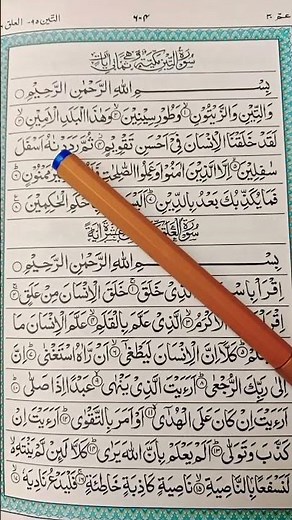 عمّ ٣٠ ٦٠٤ التّين ٩٥ العلق
سُوْرَةُ التِّيْنِ مَكِّيَّةٌ وَّهِىَ ثَمَانِىْ اٰيَاتٍ
بِسْمِ اللهِ الرَّحْمٰنِ الرَّحِيْمِ
وَالتِّيْنِ وَالزَّيْتُوْنِ ۙ﴿١﴾ وَطُوْرِ سِيْنِيْنَ ۙ﴿٢﴾ وَهٰذَا الْبَلَدِ الْاَمِيْنِ ۙ﴿٣﴾
لَقَدْ خَلَقْنَا الْاِنْسَانَ فِىْٓ اَحْسَنِ تَقْوِيْمٍ ﴿٤﴾ ثُمَّ رَدَدْنٰهُ اَسْفَلَ
سٰفِلِيْنَ ۙ﴿٥﴾ اِلَّا الَّذِيْنَ اٰمَنُوْا وَعَمِلُوا الصّٰلِحٰتِ مَمْنُوْنٍ ﴿٦﴾
فَمَا يُكَذِّبُكَ بَعْدُ بِالدِّيْنِ ﴿٧﴾ اَلَيْسَ الْحٰكِمِيْنَ ﴿٨﴾
سُوْرَةُ الْعَلَقِ اٰيَةً
بِسْمِ اللهِ الرَّحْمٰنِ الرَّحِيْمِ
اِقْرَاْ بِاسْمِ الَّذِىْ خَلَقَ ﴿١﴾ خَلَقَ الْاِنْسَانَ مِنْ عَلَقٍ ﴿٢﴾
اِقْرَاْ الْاَكْرَمُ ﴿٣﴾ الَّذِىْ عَلَّمَ بِالْقَلَمِ ﴿٤﴾ عَلَّمَ الْاِنْسَانَ مَا
كَلَّآ اِنَّ الْاِنْسَانَ لَيَطْغٰٓى ﴿٦﴾ اَنْ رَّاٰهُ اسْتَغْنٰى ﴿٧﴾ اِنَّ
اِلٰى رَبِّكَ الرُّجْعٰى ﴿٨﴾ اَرَءَيْتَ الَّذِىْ يَنْهٰى ﴿٩﴾ عَبْدًا اِذَا صَلّٰى ﴿١٠﴾
اَرَءَيْتَ اِنْ كَانَ عَلَى الْهُدٰٓى ﴿١١﴾ اَوْ اَمَرَ بِالتَّقْوٰى ﴿١٢﴾ اَرَءَيْتَ اِنْ
كَذَّبَ وَتَوَلّٰى ﴿١٣﴾ اَلَمْ يَعْلَمْ بِاَنَّ اللهَ يَرٰى ﴿١٤﴾ كَلَّا لَئِنْ لَّمْ يَنْتَهِ
لَنَسْفَعًۢا بِالنَّاصِيَةِ ﴿١٥﴾ نَاصِيَةٍ كَاذِبَةٍ خَاطِئَةٍ ﴿١٦﴾ فَلْيَدْعُ نَادِيَهٗ ﴿١٧﴾